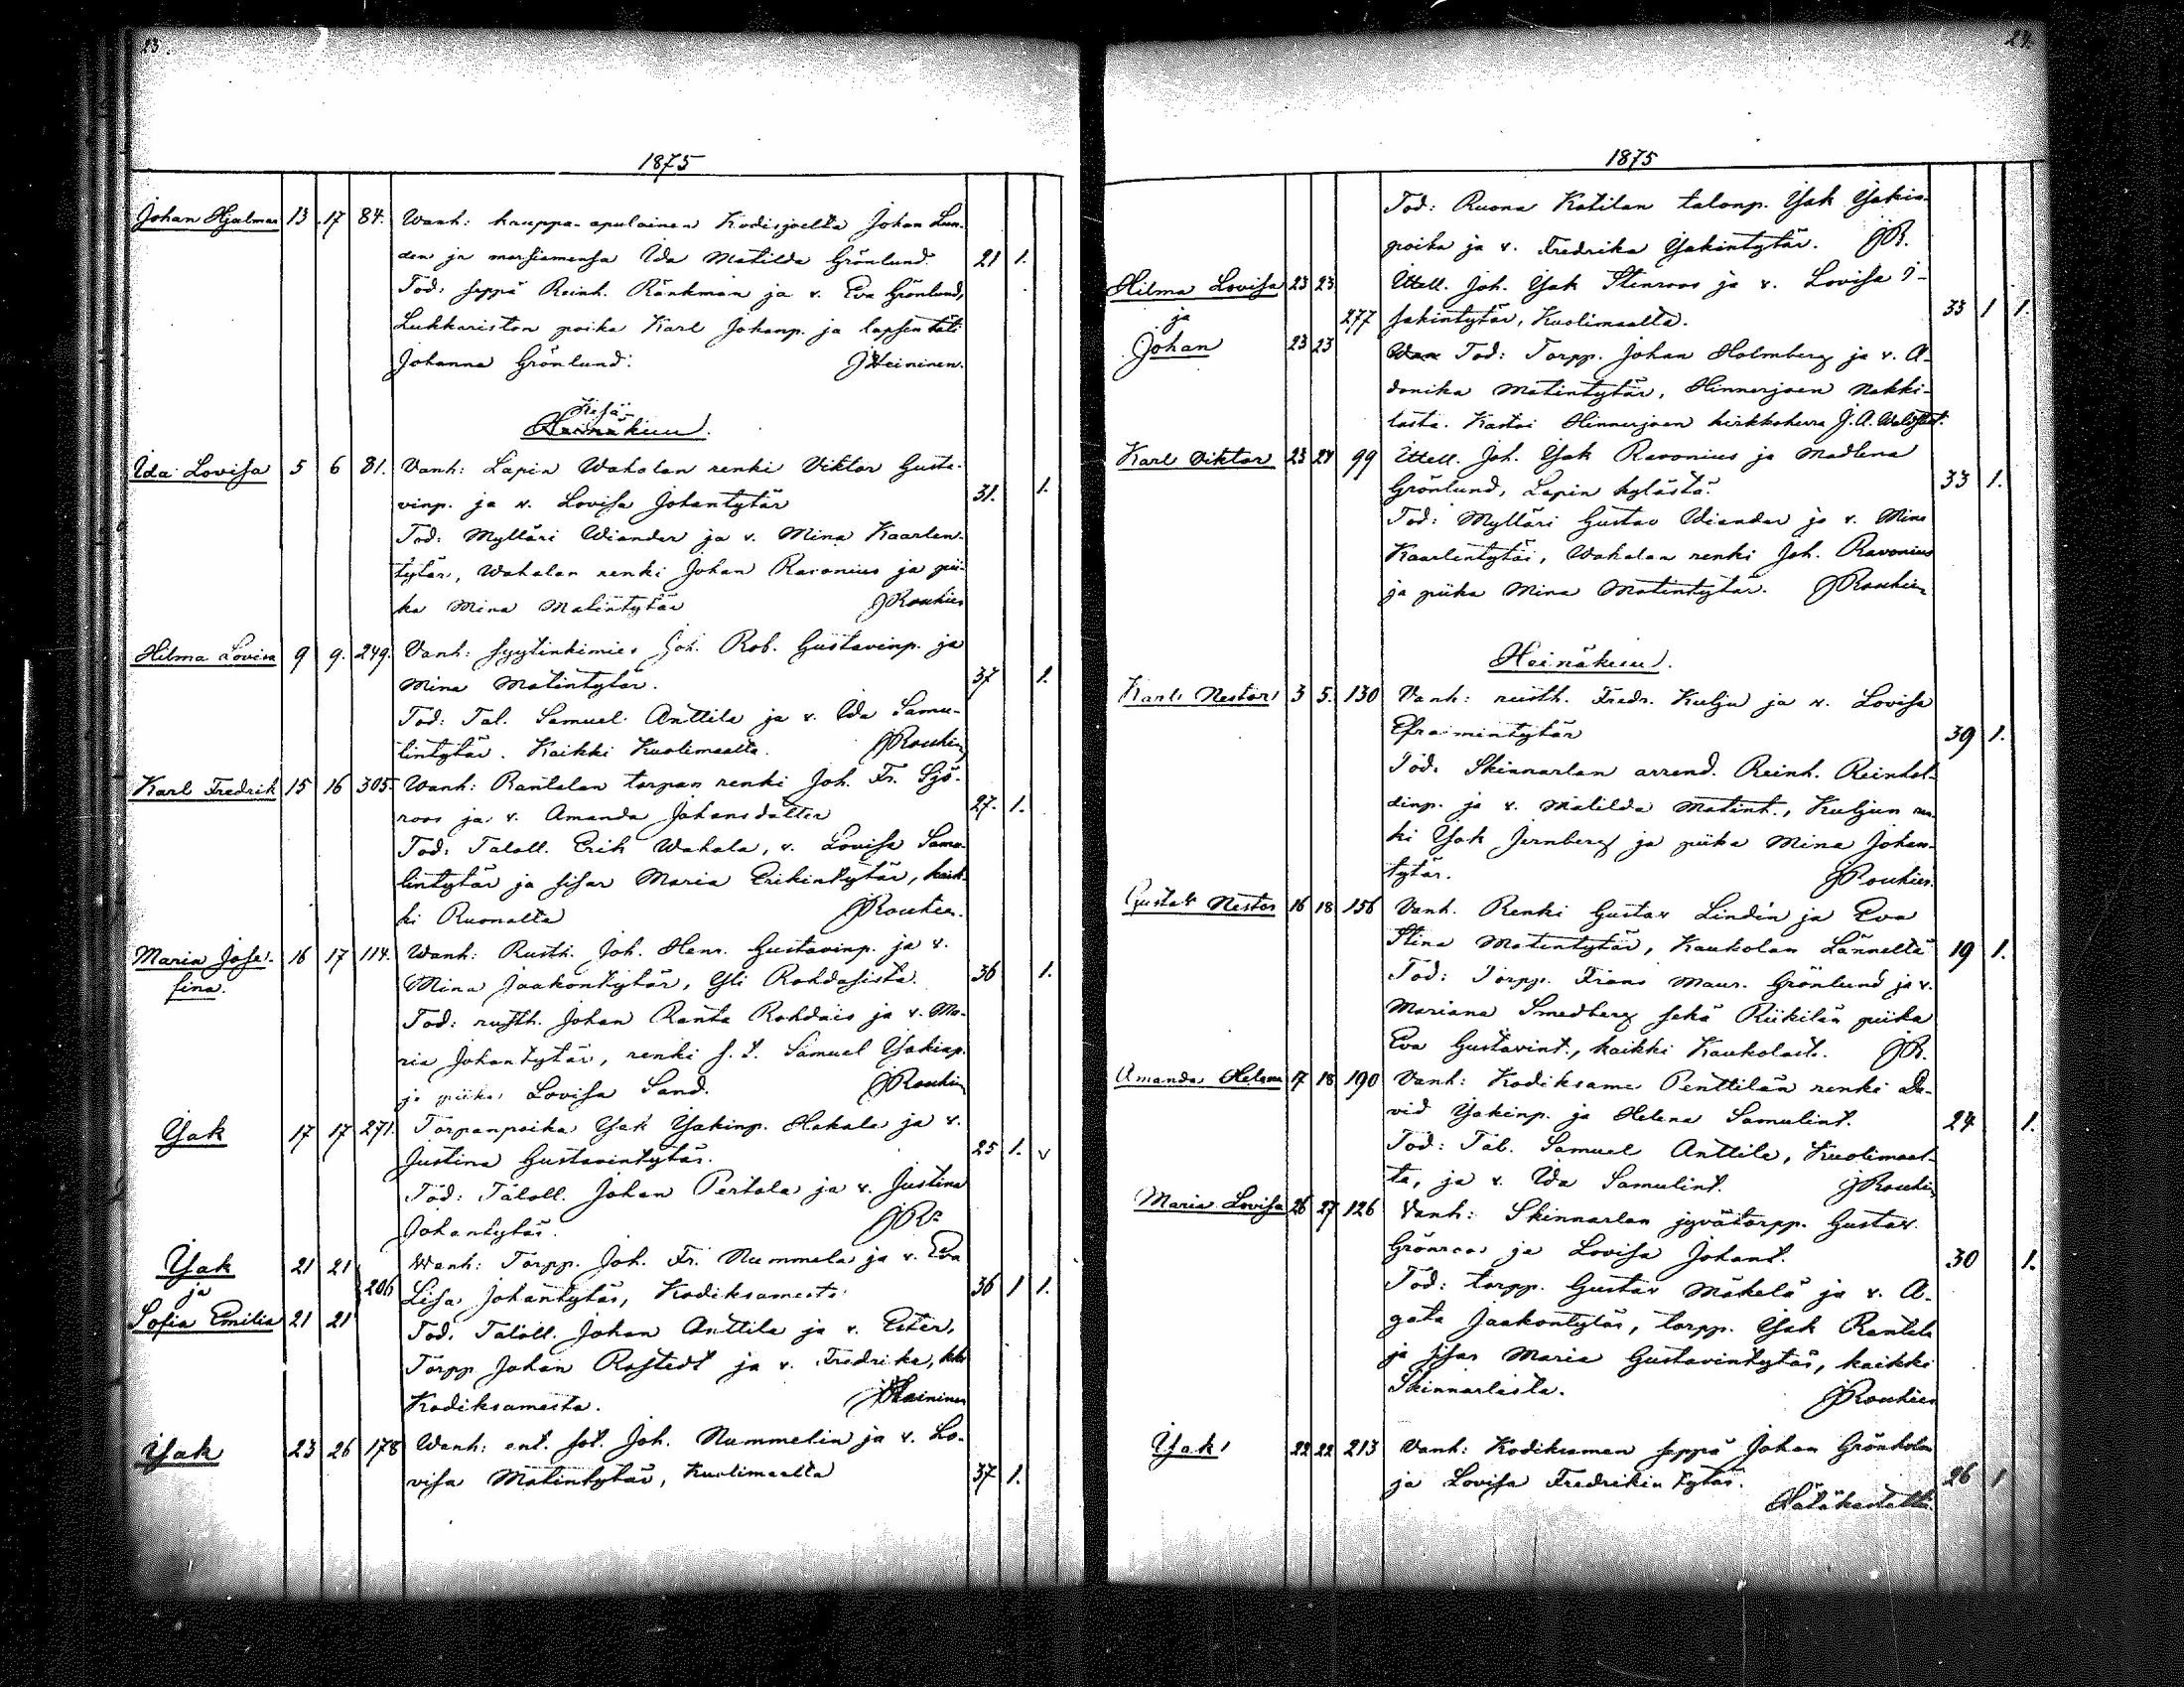 23.
1875
Johan Hjalmar 13 17 84. Wanh: kauppa-apulainen Kodisjoelta Johan Lun-
den ja morsiamensa Ida Matilda Grönlund. 21 1.
Tod: seppä Reinh. Ränkman ja v. Eva Grönlund,
Lukkariston poika Karl Johanp. ja lapsen täti
Johanna Grönlund. JHeininen.
Kesä-
Heinäkuu.
Ida Lovisa 5 6 81. Vanh: Lapin Wahalan renki Viktor Gusta-
vinp. ja v. Lovisa Johantytär 31. 1.
Tod: Mylläri Wiander ja v. Mina Kaarlen-
tytär, Wahalan renki Johan Ravonius ja pii-
ka Mina Matintytär JRouhien
Hilma Lovisa 9 9. 249. Vanh: syytinkimies Joh. Rob. Gustavinp. ja
Mina Matintytär. 37 1.
Tod: Tal. Samuel Anttila ja v. Ida Samu-
lintytär. Kaikki Kuolimaalta. JRouhien
Karl Fredrik 15 16 305. Wanh: Rantalan torpan renki Joh. Fr. Sjö-
roos ja v. Amanda Johansdotter 27. 1.
Tod: Taloll. Erik Wahala, v. Lovisa Samu-
lintytär ja sisar Maria Erikintytär, kaik-
ki Ruonalta JRouhien.
Maria Jose- 16 17 114. Wanh: Rusth. Joh. Henr. Gustavinp. ja v.
fina. Mina Jaakontytär, Yli Rohdaisista. 36 1.
Tod: rusth. Johan Ranta Rohdais ja v. Ma-
ria Johantytär, renki s. t. Samuel Ysakinp.
ja piika Lovisa Sand. JRouhien
Ysak 17 17 271. Torpanpoika Ysak Ysakinp. Hakala ja v.
Justina Gustavintytär. 25 1. v
Tod: Taloll. Johan Pertola ja v. Justina
Johantytär. JR.
Ysak 21 21 Wanh: Torpp. Joh. Fr. Nummela ja v. Eva
ja 206 Lisa Johantytär, Kodiksamesta 36 1 1.
Sofia Emilia 21 21 Tod. Taloll. Johan Anttila ja v. Ester,
Torpp Johan Rostedt ja v. Fredrika, kki
Kodiksamesta. JHeininen
Ysak 23 26 178 Wanh: ent. sot. Joh. Nummelin ja v. Lo-
visa Matintytär, Kuolimaalta 37 1.
24.
1875
Tod: Ruona Kotilan talonp. Ysak Ysakin-
poika ja v. Fredrika Ysakintytär. JR.
Hilma Lovisa 23 23 Ittell. Joh. Ysak Stenroos ja v. Lovisa I-
ja 277 sakintytär, Kuolimaalta. 33 1 1.
Johan 23 23 Wan Tod: Torpp. Johan Holmberg ja v. A-
donika Matintytär, Hinnerjoen Nakki-
lasta. Kastoi Hinnerjoen kirkkoherra J. A. Waldstedt.
Karl Viktor 23 24 99 Ittell. Joh. Ysak Ravonius ja Madlena
Grönlund, Lapin kylästä. 33 1.
Tod: Mylläri Gustav Wiander ja v. Mina
Kaarlentytär, Wahalan renki Joh. Ravonius
ja piika Mina Matintytär. JRouhien
Heinäkuu.
Karl Nestor 3 5. 130 Vanh: rusth. Fredr. Kulju ja v. Lovisa
Efraimintytär 39 1.
Tod. Skinnarlan arrend. Reinh. Reinhol-
dinp. ja v. Matilda Matint., Kuljun ren-
ki Ysak Jernberg ja piika Mina Johan-
tytär. JRouhien.
Gustav Nestor 16 18 156 Vanh. Renki Gustav Lindén ja Eva
Stina Matintytär, Kaukolan Länneltä 19 1.
Tod: Torpp. Frans Maur. Grönlund ja v.
Mariana Smedberg sekä Riikilän piika
Eva Gustavint., kaikki Kaukolast. JR.
Amanda Helena 17 18 190 Vanh: Kodiksame Penttilän renki Da-
vid Ysakinp. ja Helena Samulint. 24 1.
Tod: Tal. Samuel Anttila, Kuolimaal-
ta, ja v. Ida Samulint. JRouhien
Maria Lovisa 26 27 126 Vanh: Skinnarlan jyvätorpp. Gustav
Grönroos ja Lovisa Johant. 30 1.
Tod: torpp. Gustav Mäkelä ja v. A-
gata Jaakontytär, torpp. Ysak Rantala
ja sisar Maria Gustavintytär, kaikki
Skinnarlasta. JRouhien
Ysak 22 22 213 Vanh: Kodiksamen seppä Johan Grönholm
ja Lovisa Fredrikin tytär. 26 1
Hätäkastettu.